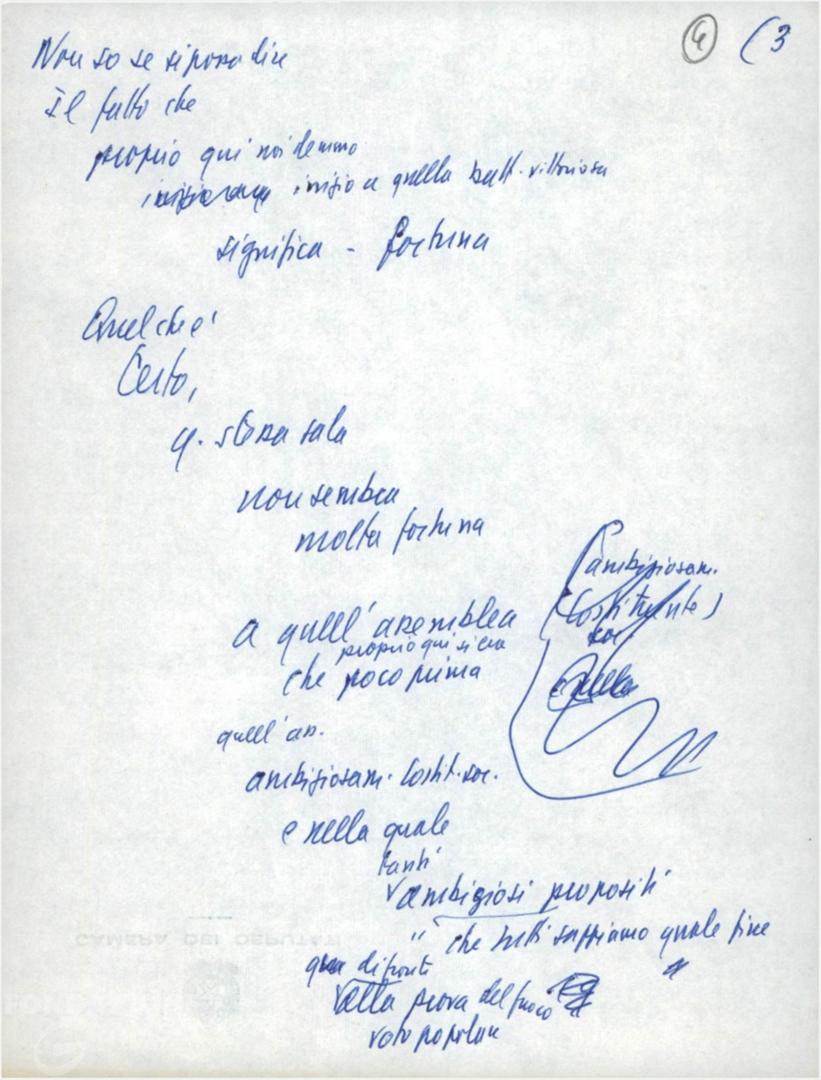 4 (3
Non so se si possa dire
Il fatto che
proprio qui noi demmo
inizio a quella batt. vittoriosa
significa - fortuna
Quel che è
Certo,
q. stessa sala
non sembra
molta fortuna
ambiziosam.
(Costituente)
soc
a quell'assemblea
proprio qui si era
che poco prima
quella
quell'ass.
ambiziosam. Costit. soc.
e nella quale
tanti
ambiziosi propositi
" che tutti sappiamo quale fine
di fronte
alla prova del fuoco
voto popolare
CAMERA DEI DEPUTATI